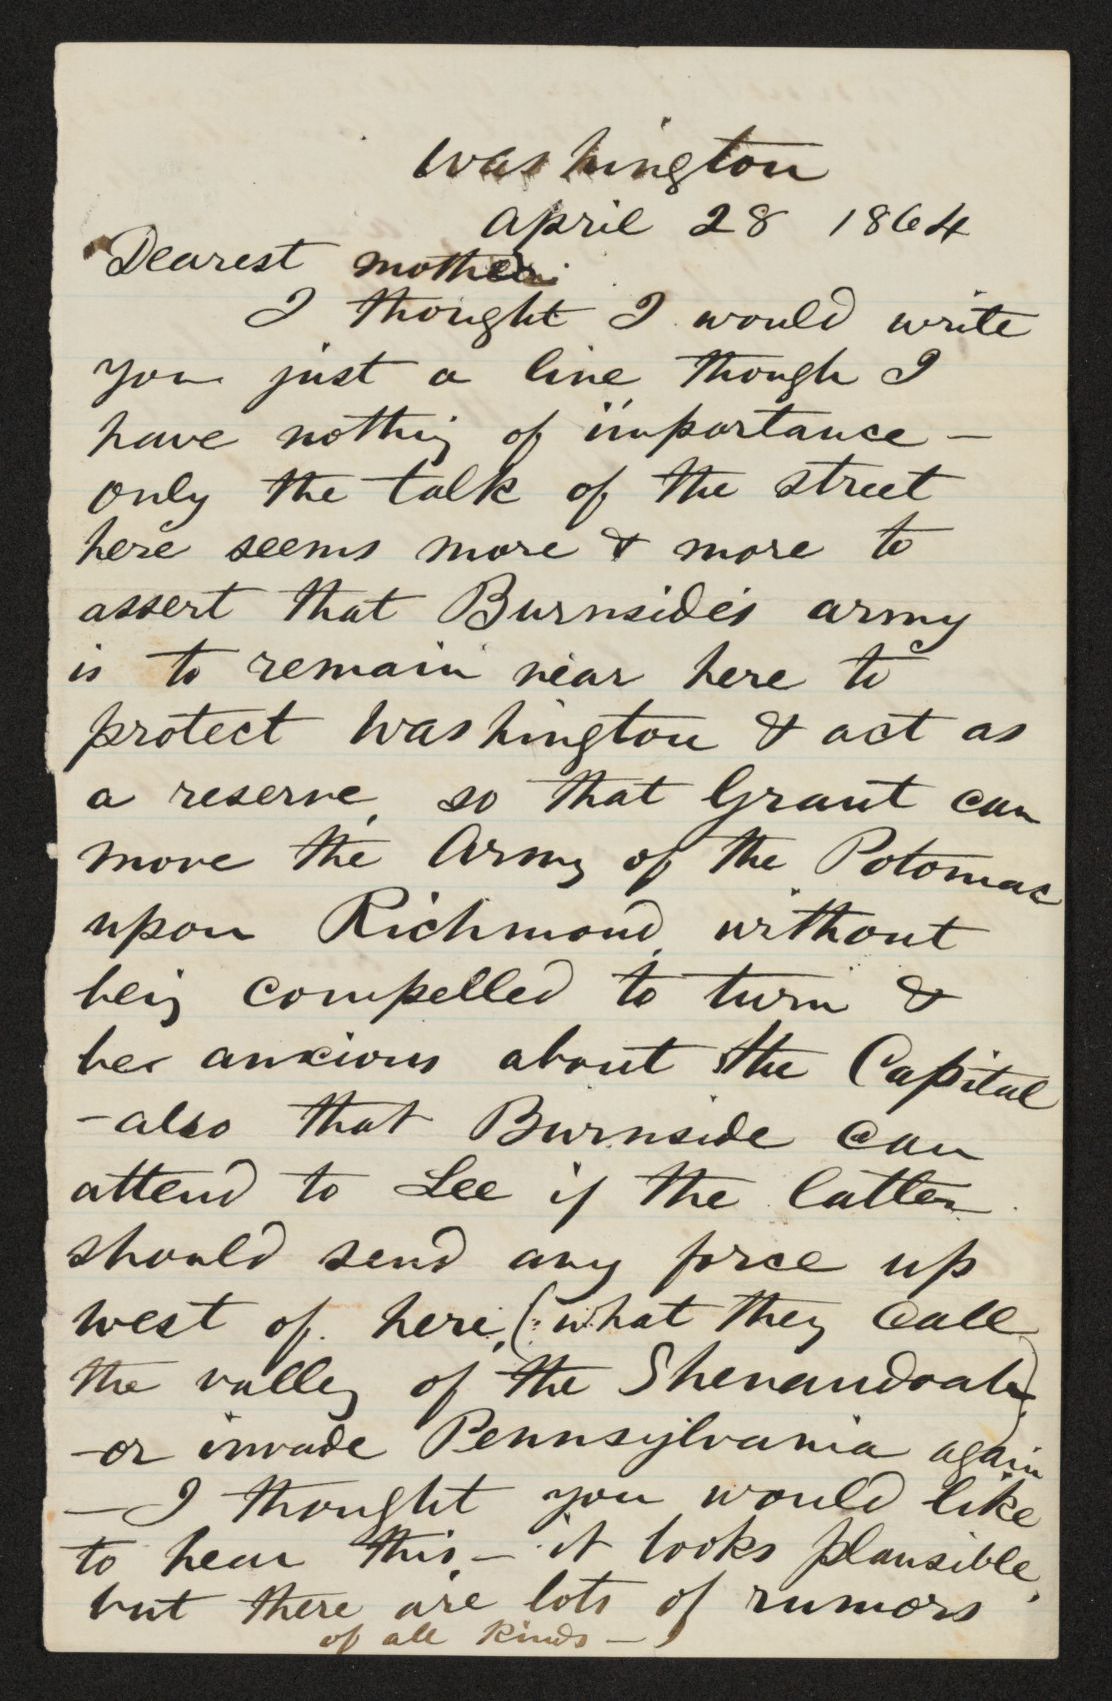 Washington
April 28 1864
Dearest mother.
I thought I would write
you just a line though I
have nothing of importance –
only the talk of the street
here seems more & more to
assert that Burnside's army
is to remain near here to
protect Washington & act as
a reserve, so that Grant can
move the Army of the Potomac
upon Richmond, without
being compelled to turn &
be anxious about the Capital
– also that Burnside can
attend to Lee if the latter
should send any force up
west of here, (what they call
the valley of the Shenandoah)
– or invade Pennsylvania again
– I thought you would like
to hear this – it looks plausible,
but there are lots of rumors
of all kinds –